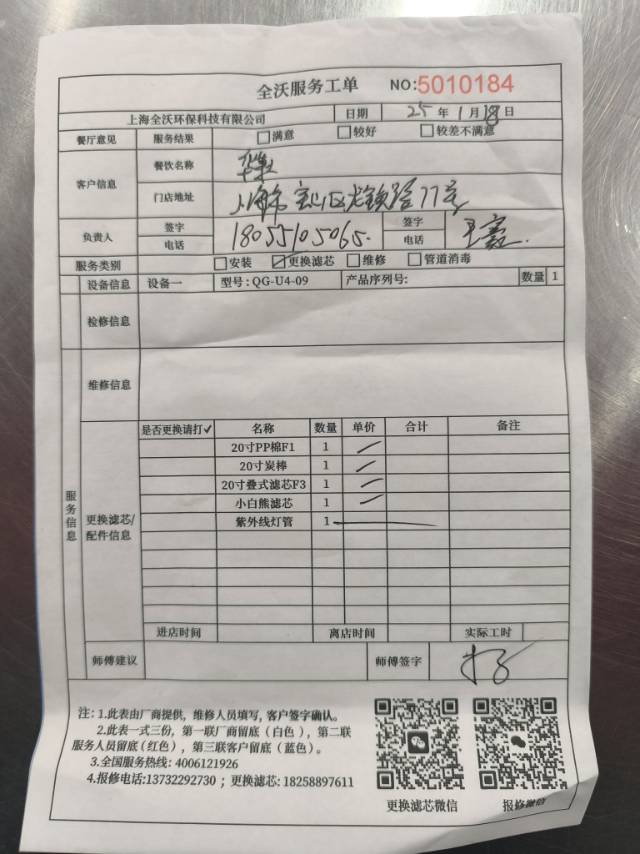 全沃服务工单 NO:5010184
上海全沃环保科技有限公司 日期 25 年 1 月 日
餐厅意见 服务结果 □满意 □较好 □较差不满意
客户信息 餐饮名称
门店地址 上海市宝山区 77号
负责人 签字 签字
电话 18055105065. 电话 王
服务类别 □安装 ☑更换滤芯 □维修 □管道消毒
设备信息 设备一 型号: QG-U4-09 产品序列号: 数量 1
检修信息
维修信息
服务信息
更换滤芯/配件信息
是否更换请打✓ 名称 数量 单价 合计 备注
20寸PP棉F1 1
20寸炭棒 1
20寸叠式滤芯F3 1
小白熊滤芯 1
紫外线灯管 1
进店时间 离店时间 实际工时
师傅建议 师傅签字
注: 1.此表由厂商提供，维修人员填写，客户签字确认。
2.此表一式三份，第一联厂商留底（白色），第二联
服务人员留底(红色)，第三联客户留底（蓝色）。
3.全国服务热线: 4006121926
4.报修电话:13732292730 ; 更换滤芯: 18258897611
更换滤芯微信 报修微信